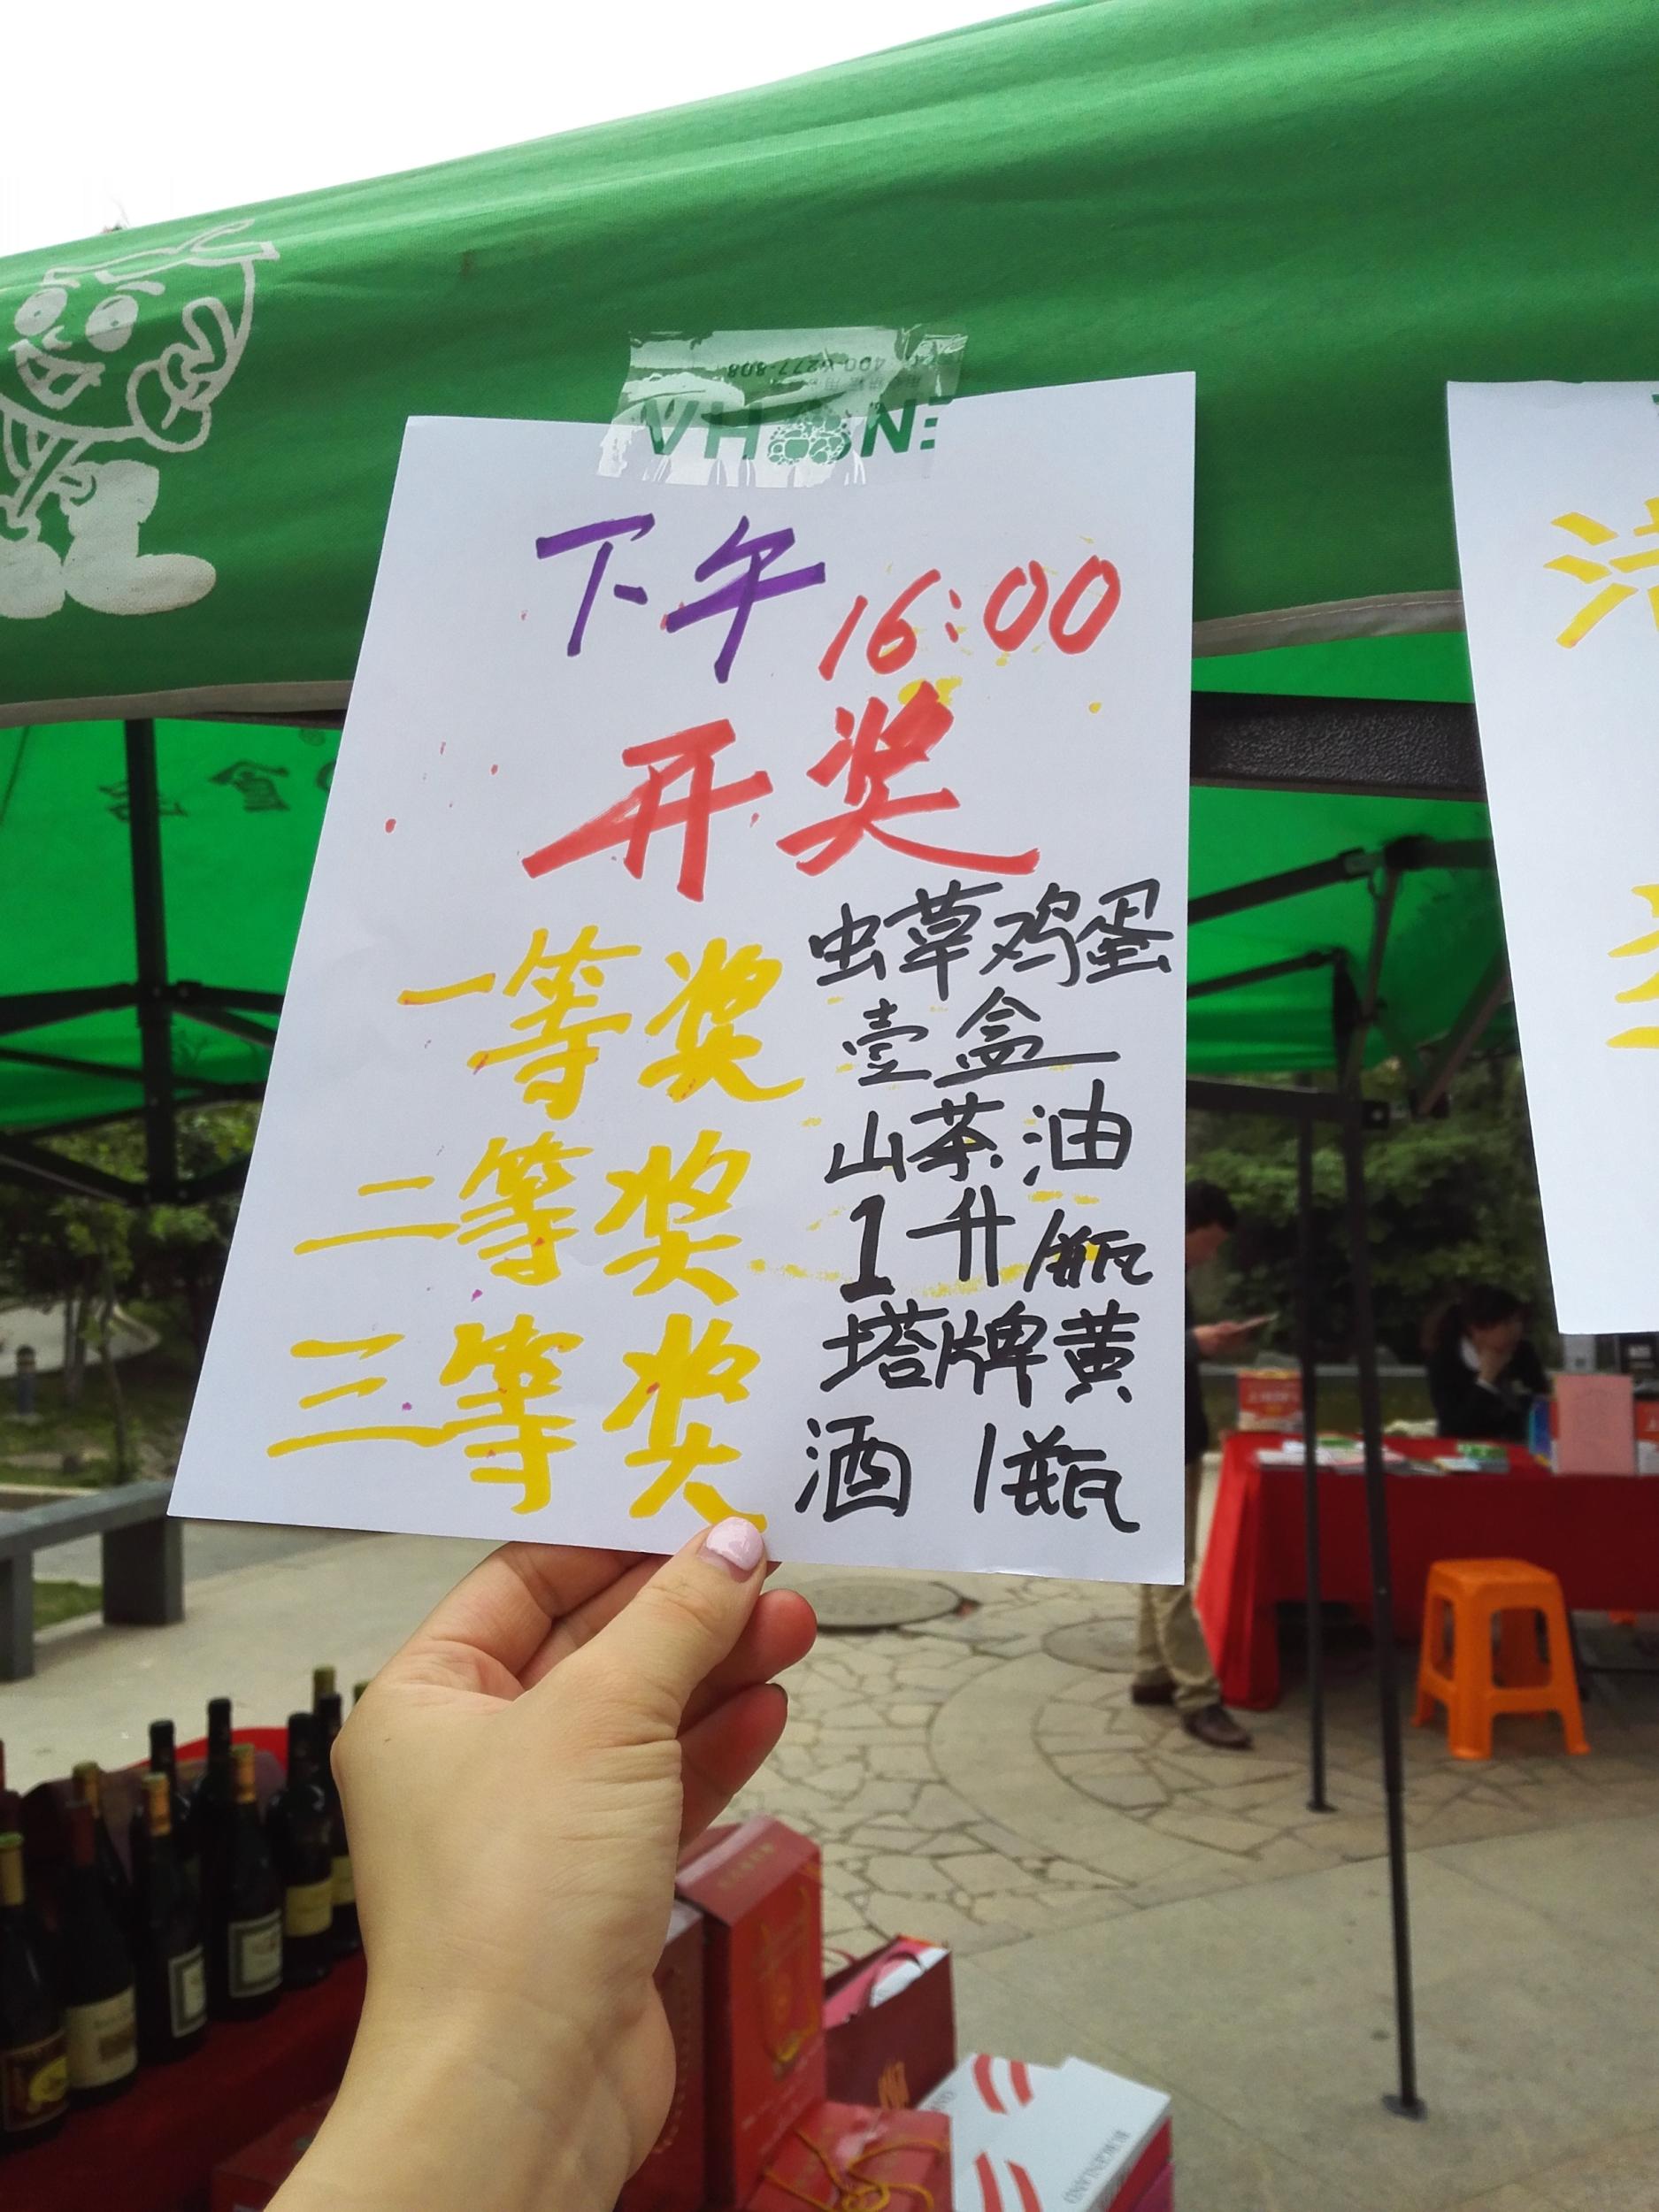 下午 16:00
开奖
一等奖 虫草鸡蛋
壹盒
二等奖 山茶油
1升/瓶
三等奖 塔牌黄
酒 1瓶